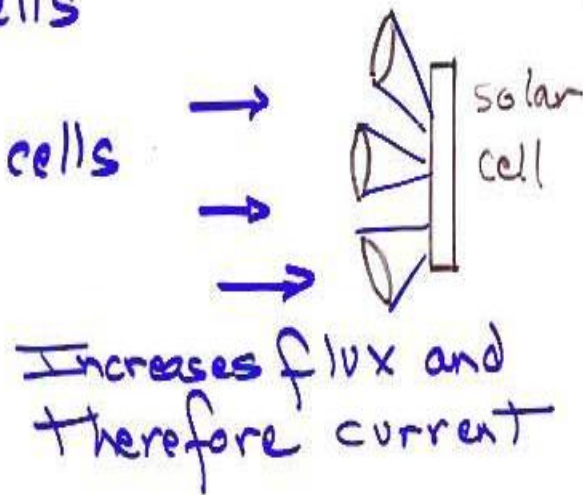 cells
solar
cells
cell
Increases flux and
therefore current